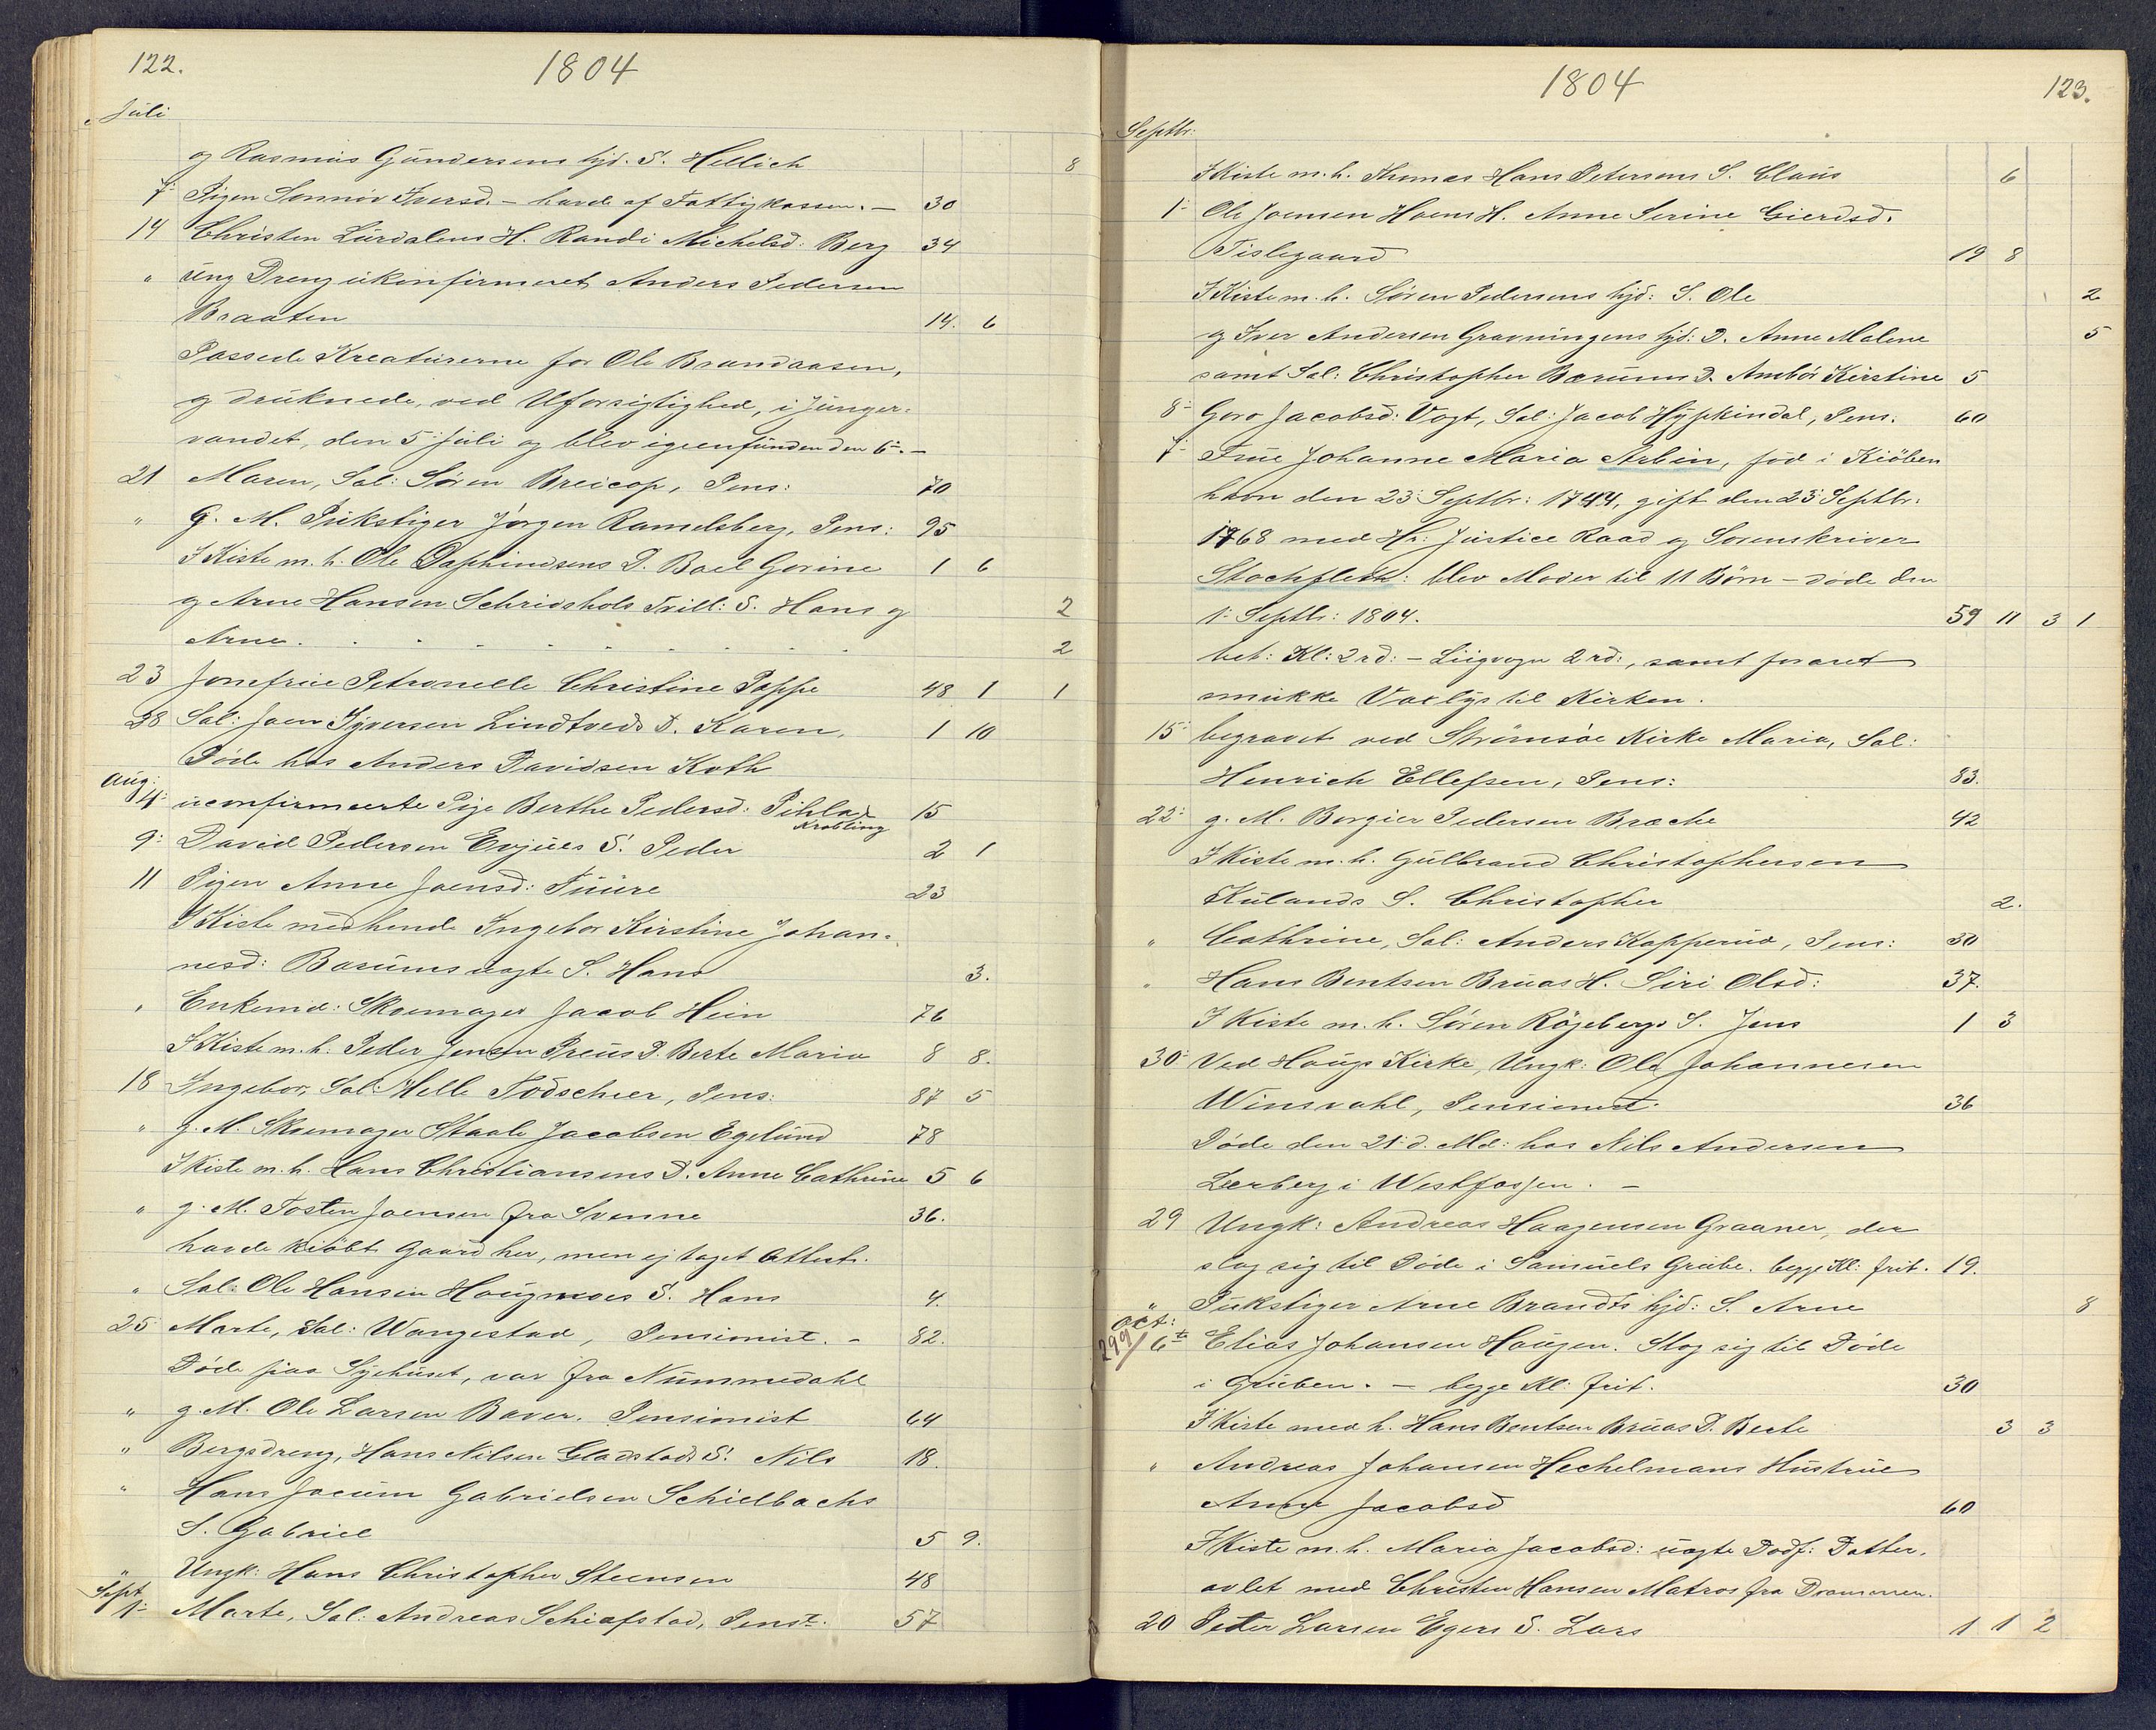 122.
1804
Juli
og Rasmus Gundersens hjd. S. Hellich 8
7- Pigen Sonnöv Iversd. - havde af Fattigkassen. - 30
14 Christen Lurdalens H. Randi Michelsd: Berg 34
" ung Dreng ukonfirmeret Anders Pedersen
Braaten 14. 6
Passede Kreaturerne for Ole Brandaasen,
og druknede, ved Uforsigtighed, i Junger-
vandet, den 5- Juli og blev igjenfunden den 6-. -
21 Maren, Sal: Sören Breicop, Pens: 70
" G. M. Pukstiger Jörgen Ramelsberg, Pens: 95
I Kiste m. h. Ole Daphindsens D. Boel Gorine 1 6
og Arne Hansen Schridshols Tvill: S. Hans og 2
Arne . . . . . . . . 2
23 Jomfrue Petronelle Christine Poppe 48 1 1
28 Sal: Joen Syversen Lindtveds D. Karen, 1 10
Döde hos Anders Davidsen Koth
Aug:
4- uconfirmeerte Pige Berthe Pedersd: Pihla 15
Krobling
9: David Pedersen Evjues S. Peder 2 1
11 Pigen Anne Joensd: Tuure 23
I Kiste medhende Ingebor Kirstine Johan-
nesd: Barums uægte S. Hans 3.
" Enkemd: Skoemager Jacob Hein 76
I Kiste m. h: Peder Jensen Preus D. Berte Maria 8 8.
18 Ingebor, Sal: Helle Födscheer, Pens: 87 5
" g. M. Skoemager Staale Jacobsen Egelund 78
I Kiste m. h. Hans Christiansens D. Anne Cathrine 5 6
" g. M. Tosten Joensen fra Svenne 36.
havde kiöbt Gaard her, men ej taget Attest.
" Sal: Ole Hansen Hougmoes S. Hans 4.
25 Marte, Sal: Wangestad, Pensionist. - 82.
Döde paa Sygehuset, var fra Nummedahl
" g. M. Ole Larsen Baver. Pensionist 64
" Bergsdreng, Hans Nilsen Gladstads S: Nils 18.
" Hans Jocum Gabrielsen Schielbachs
S. Gabriel 5 9.
" Ungk: Hans Christopher Steensen 48
Sept
1- Marte, Sal: Andreas Schiafstad, Penst. 57
1804
123.
Septbr:
I Kiste m. h. Thomas Hans Petersens S. Claus 6
1- Ole Joensen Hoens H. Anne Serine Gierdsd.
Tislegaard 19 8
I Kiste m. h. Sören Pedersens hjd: S. Ole 2
og Iver Andersen Gravningens hjd: D. Anne Malene 5
samt Sal: Christopher Barums D. Ambör Kirstine 5
8- Goro Jacobsd: Vogt, Sal: Jacob Hypkindal, Pens. 60
7- Frue Johanne Maria Arbin, föd i Kiöben
havn den 23- Septbr: 1744, gift den 23- Septbr:
1768 med Hr: Justice Raad og Sorenskriver
Stochfleth: blev Moder til 11 Börn - döde den
1- Septbr: 1804. 59 11 3 1
bet: Kl: 2 rd: - Liigvogn 2 rd:, samt foræret
smukke Vaxlys til Kirken.
15- begravet ved Strömsöe Kirke Maria, Sal:
Henrich Ellefsen, Pens: 83.
22- g. M. Borgier Pedersen Bræche 42
I Kiste m. h. Gulbrand Christophersen
Kulands S. Christopher 2.
" Cathrine, Sal: Anders Kopperud, Pens: 30
" Hans Bentsen Bruas H. Siri Olsd: 37.
I Kiste m. h. Sören Rögebergs S. Jens 1 3
30- Ved Hougs Kirke, Ungk: Ole Johannesen
Winsvahl, Pensionist. 36
Döde den 21- d. Md: hos Nils Andersen
Lerberg i Westfossen. -
29 Ungk: Andreas Haagensen Graaner, der
slog sig til Döde i Samuels Grube. begge Kl: frit. 19.
" Pukstiger Arne Brandts hjd: S. Arne 8
Oct:
299/ 6te Elias Johansen Haugen. Slog sig til Döde
i Gruben. - begge Kl: frit. 30
I Kiste med h. Hans Bentsen Bruas D. Berte 3 3
" Andreas Johansen Hechelmans Hustrue
Anne Jacobsd 60
I Kiste m. h. Maria Jacobsd: uægte Dödf: Datter,
avlet med Christen Hansen Matros fra Drammen.
20 Peter Larsen Egers S. Lars 1 1 2